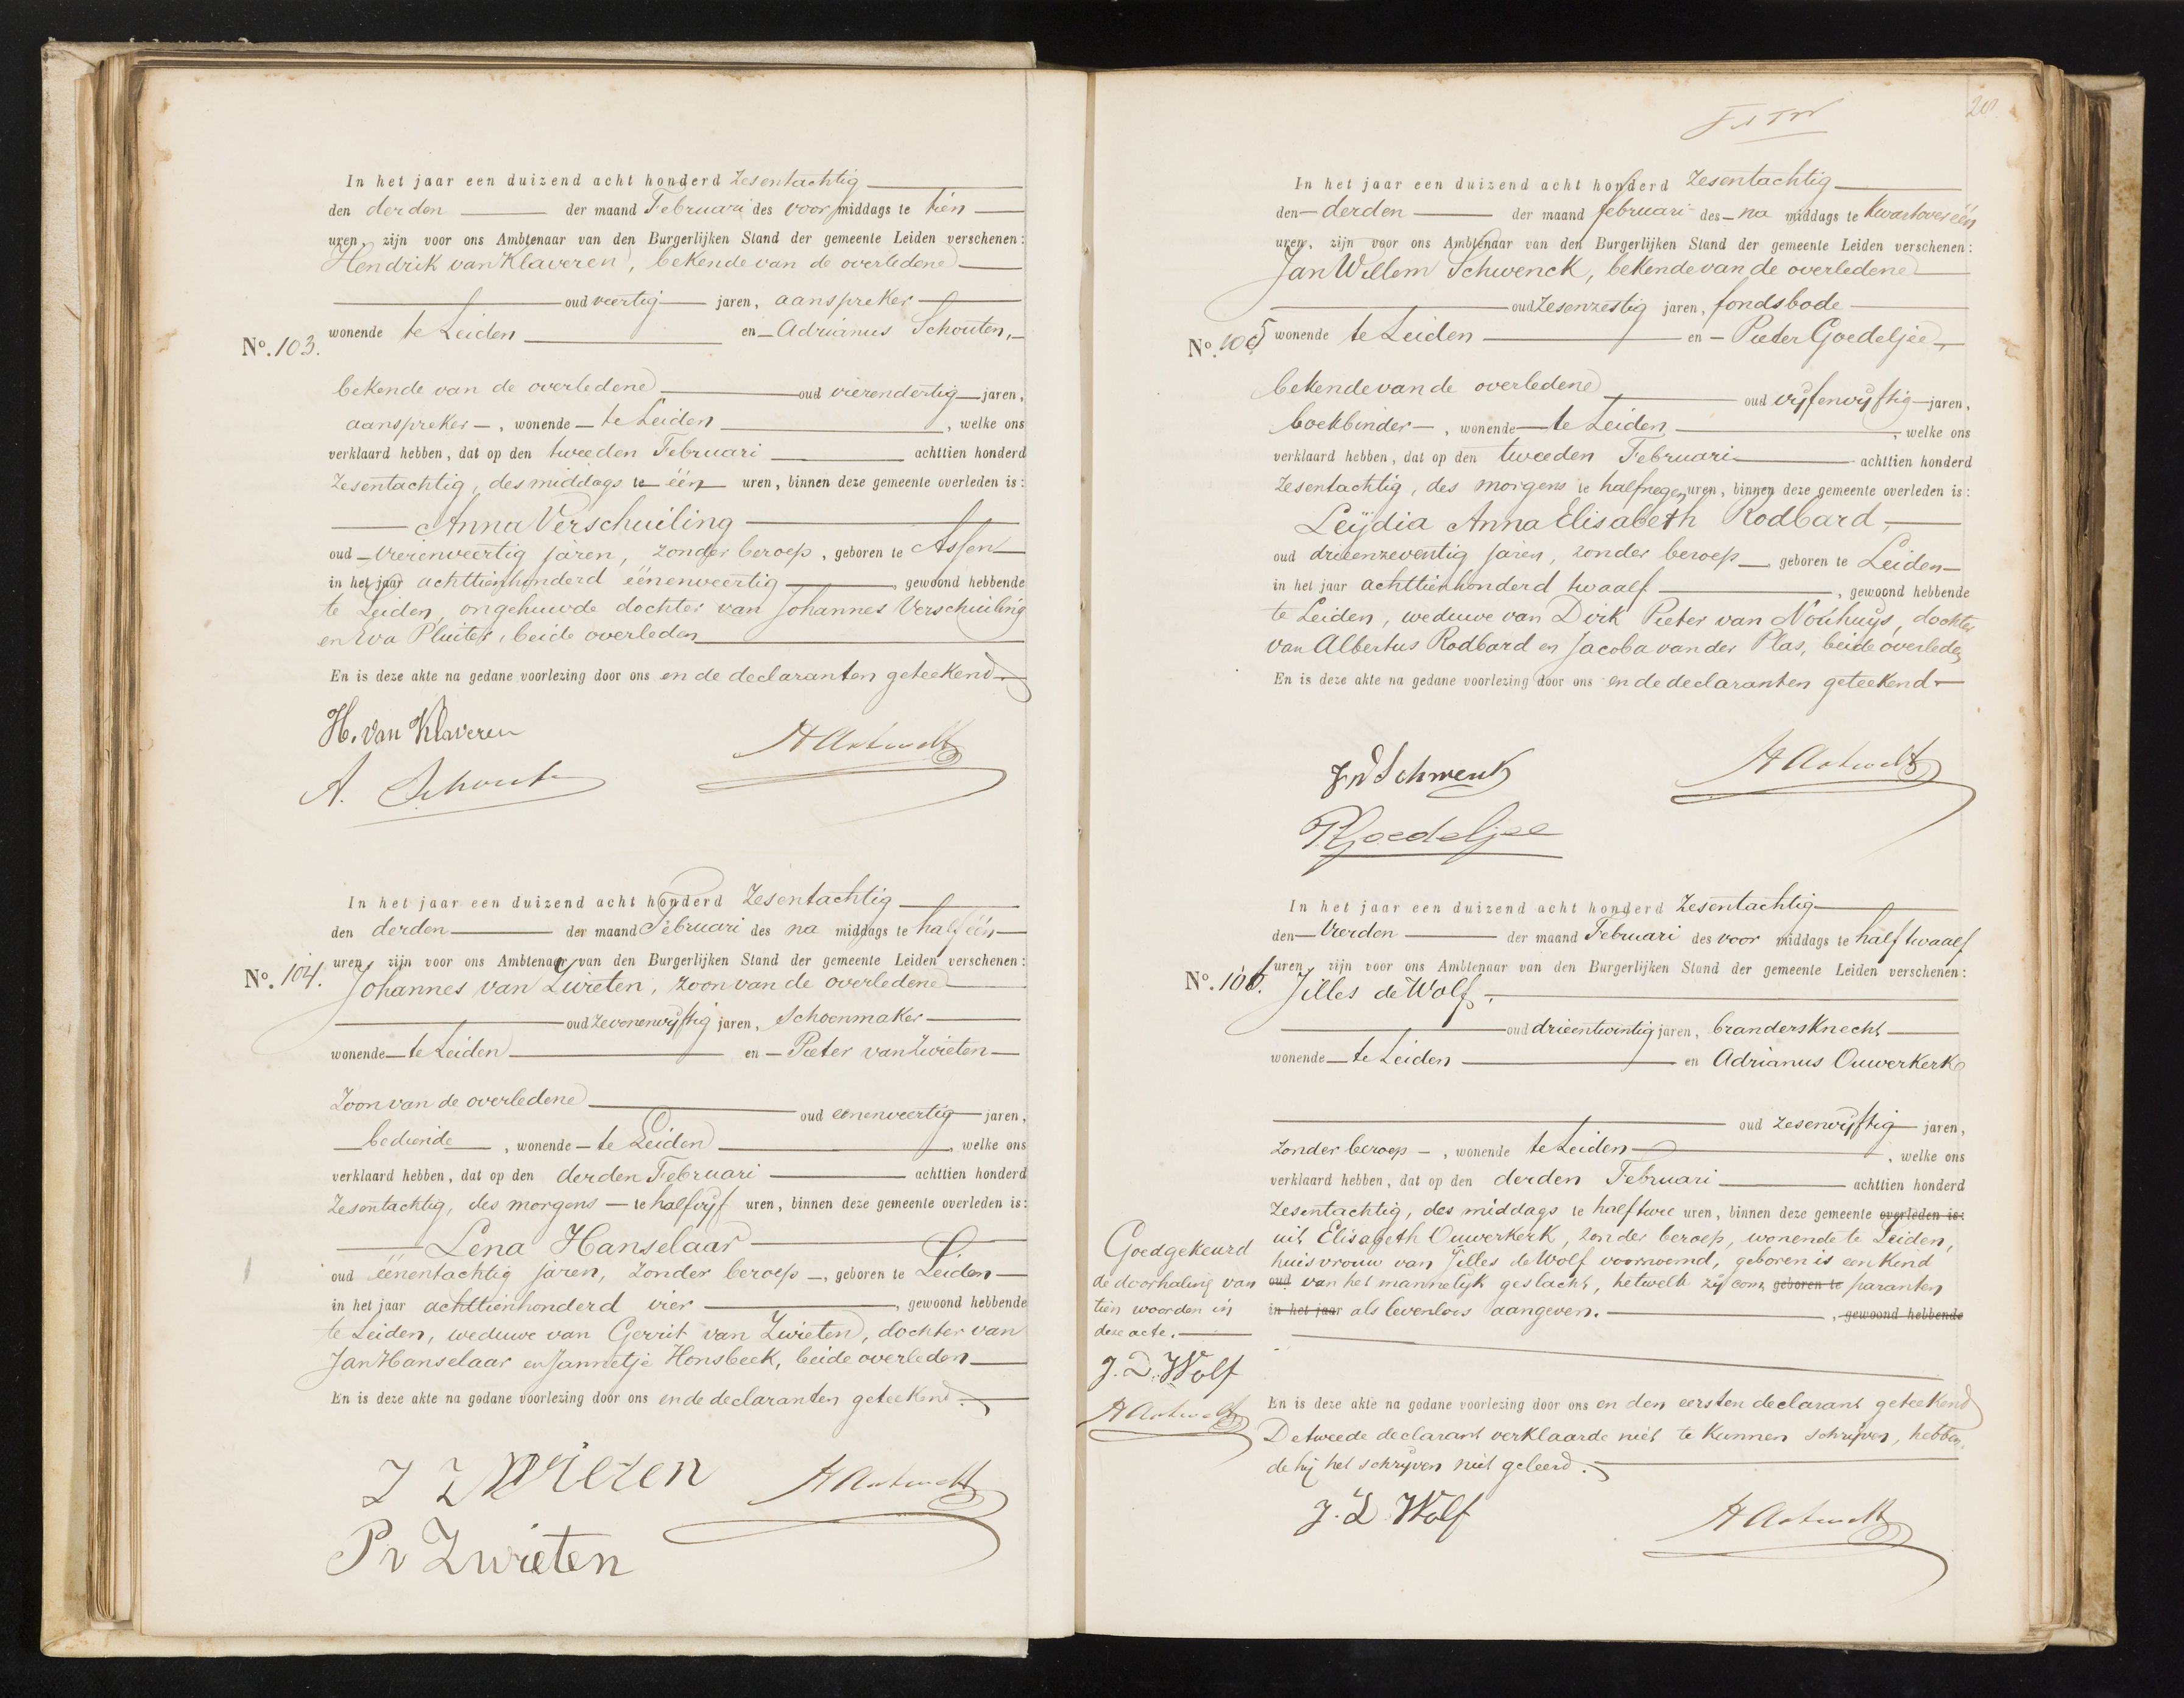 In het jaar een duizend acht honderd zesentachtig
den derden der maand Februari des voor middags te tien
uren, zijn voor ons Ambtenaar van den Burgerlijken Stand der gemeente Leiden verschenen:
Hendrik van Klaveren, bekende van de overledene
oud veertig jaren, aanspreker
No. 103. wonende te Leiden en Adrianus Schouten,
bekende van de overledene oud vierendertig jaren,
aanspreker, wonende te Leiden, welke ons
verklaard hebben, dat op den tweeden Februari achttien honderd
zesentachtig, des middags te één uren, binnen deze gemeente overleden is:
Anna Verschuiling
oud vierenveertig jaren, zonder beroep, geboren te Assen
in het jaar achttienhonderd éénenveertig, gewoond hebbende
te Leiden, ongehuwde dochter van Johannes Verschuiling
en Eva Pluiter, beide overleden
En is deze akte na gedane voorlezing door ons en de declaranten geteekend.
H. van Klaveren
A. Schout
In het jaar een duizend acht honderd zesentachtig
den derden der maand Februari des na middags te half één
uren, zijn voor ons Ambtenaar van den Burgerlijken Stand der gemeente Leiden verschenen:
No. 104. Johannes van Zwieten, zoon van de overledene
oud zevenenvyftig jaren, schoenmaker
wonende te Leiden en Pieter van Zwieten
zoon van de overledene oud eenenveertig jaren,
bediende, wonende te Leiden, welke ons
verklaard hebben, dat op den derden Februari achttien honderd
zesentachtig, des morgens te half vyf uren, binnen deze gemeente overleden is:
Lena Hanselaar
oud éénentachtig jaren, zonder beroep, geboren te Leiden
in het jaar achttienhonderd vier, gewoond hebbende
te Leiden, weduwe van Gerrit van Zwieten, dochter van
Jan Hanselaar en Jannetje Honsbeek, beide overleden
En is deze akte na gedane voorlezing door ons en de declaranten geteekend.
J Zwieten
P v Zwieten
In het jaar een duizend acht honderd zesentachtig
den derden der maand februari des na middags te kwart over één
uren, zijn voor ons Ambtenaar van den Burgerlijken Stand der gemeente Leiden verschenen:
Jan Willem Schwenck, bekende van de overledene
oud zesenzestig jaren, fondsbode
No. 105 wonende te Leiden en Pieter Goedeljee,
bekende van de overledene oud vyfenvyftig jaren,
boekbinder, wonende te Leiden, welke ons
verklaard hebben, dat op den tweeden Februari achttien honderd
zesentachtig, des morgens te half negen uren, binnen deze gemeente overleden is:
Leijdia Anna Elisabeth Rodbard,
oud drieenzeventig jaren, zonder beroep, geboren te Leiden
in het jaar achttienhonderd twaalf, gewoond hebbende
te Leiden, weduwe van Dirk Pieter van Nouhuys, dochter
van Albertus Rodbard en Jacoba van der Plas, beide overleden
En is deze akte na gedane voorlezing door ons en de declaranten geteekend
JW Schwenck
P Goedeljee
In het jaar een duizend acht honderd zesentachtig
den vierden der maand Februari des voor middags te half twaalf
uren, zijn voor ons Ambtenaar van den Burgerlijken Stand der gemeente Leiden verschenen:
No. 106. Jilles de Wolf,
oud drieentwintig jaren, brandersknecht
wonende te Leiden en Adrianus Ouwerkerk
oud zesenvyftig jaren,
zonder beroep, wonende te Leiden, welke ons
verklaard hebben, dat op den derden Februari achttien honderd
zesentachtig, des middags te half twee uren, binnen deze gemeente overleden is:
uit Elisabeth Ouwerkerk, zonder beroep, wonende te Leiden,
huisvrouw van Jilles de Wolf voornoemd, geboren is een kind
oud van het mannelyk geslacht, hetwelk zy com geboren te paranten
in het jaar als levenloos aangeven. , gewoond hebbende
Goedgekeurd
de doorhaling van
tien woorden in
deze acte.
J. D. Wolf
En is deze akte na gedane voorlezing door ons en den eersten declarant geteekend
De tweede declarant verklaarde niet te kunnen schryven, hebben
de hy het schryven niet geleerd.
J. D. Wolf